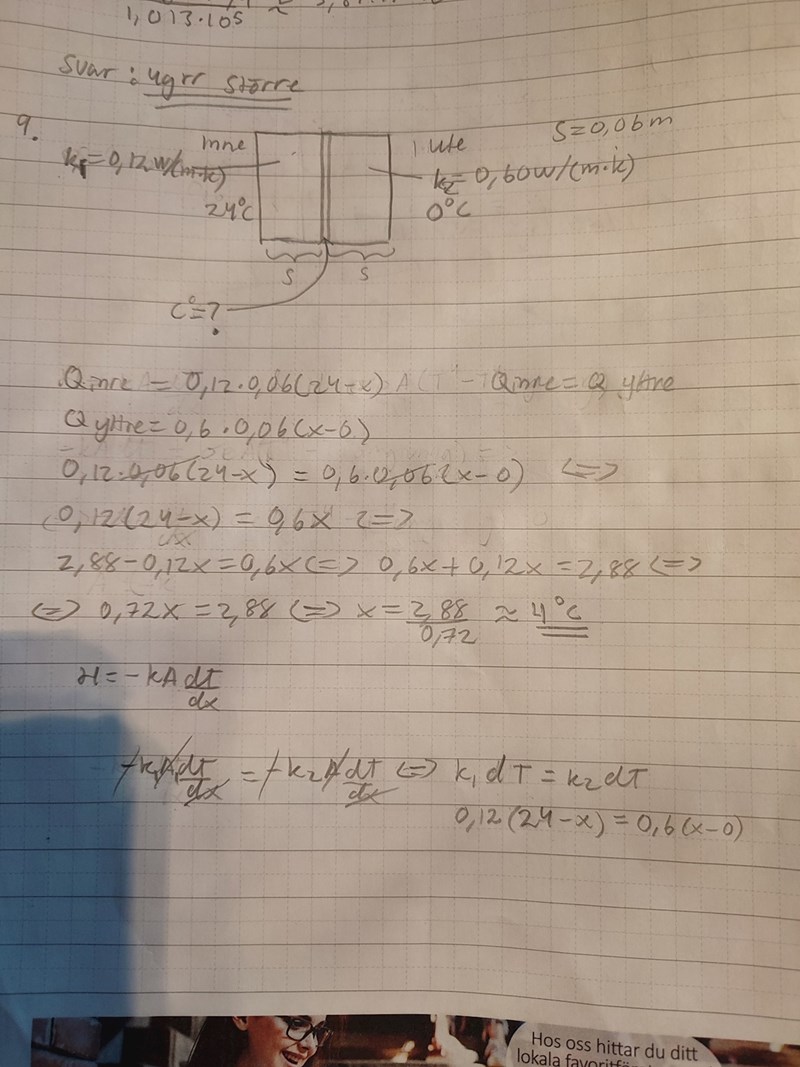 1,013·10⁵ ≈
Svar: 4ggr större
9.
inne
ute
S=0,06m
k₁=0,12W/(m·k)
k₂=0,60W/(m·k)
24°C
0°C
S
S
C°=?
Qinre = 0,12·0,06(24-x) Qinre = Q yttre
Q yttre = 0,6·0,06(x-0)
0,12·0,06(24-x) = 0,6·0,06(x-0) <=>
0,12(24-x) = 0,6x <=>
2,88-0,12x=0,6x <=> 0,6x+0,12x=2,88 <=>
<=> 0,72x=2,88 <=> x=2,88/0,72 ≈ 4°C
H=-kA dT/dx
-k₁A dT/dx = -k₂A dT/dx <=> k₁dT=k₂dT
0,12(24-x)=0,6(x-0)
Hos oss hittar du ditt
lokala